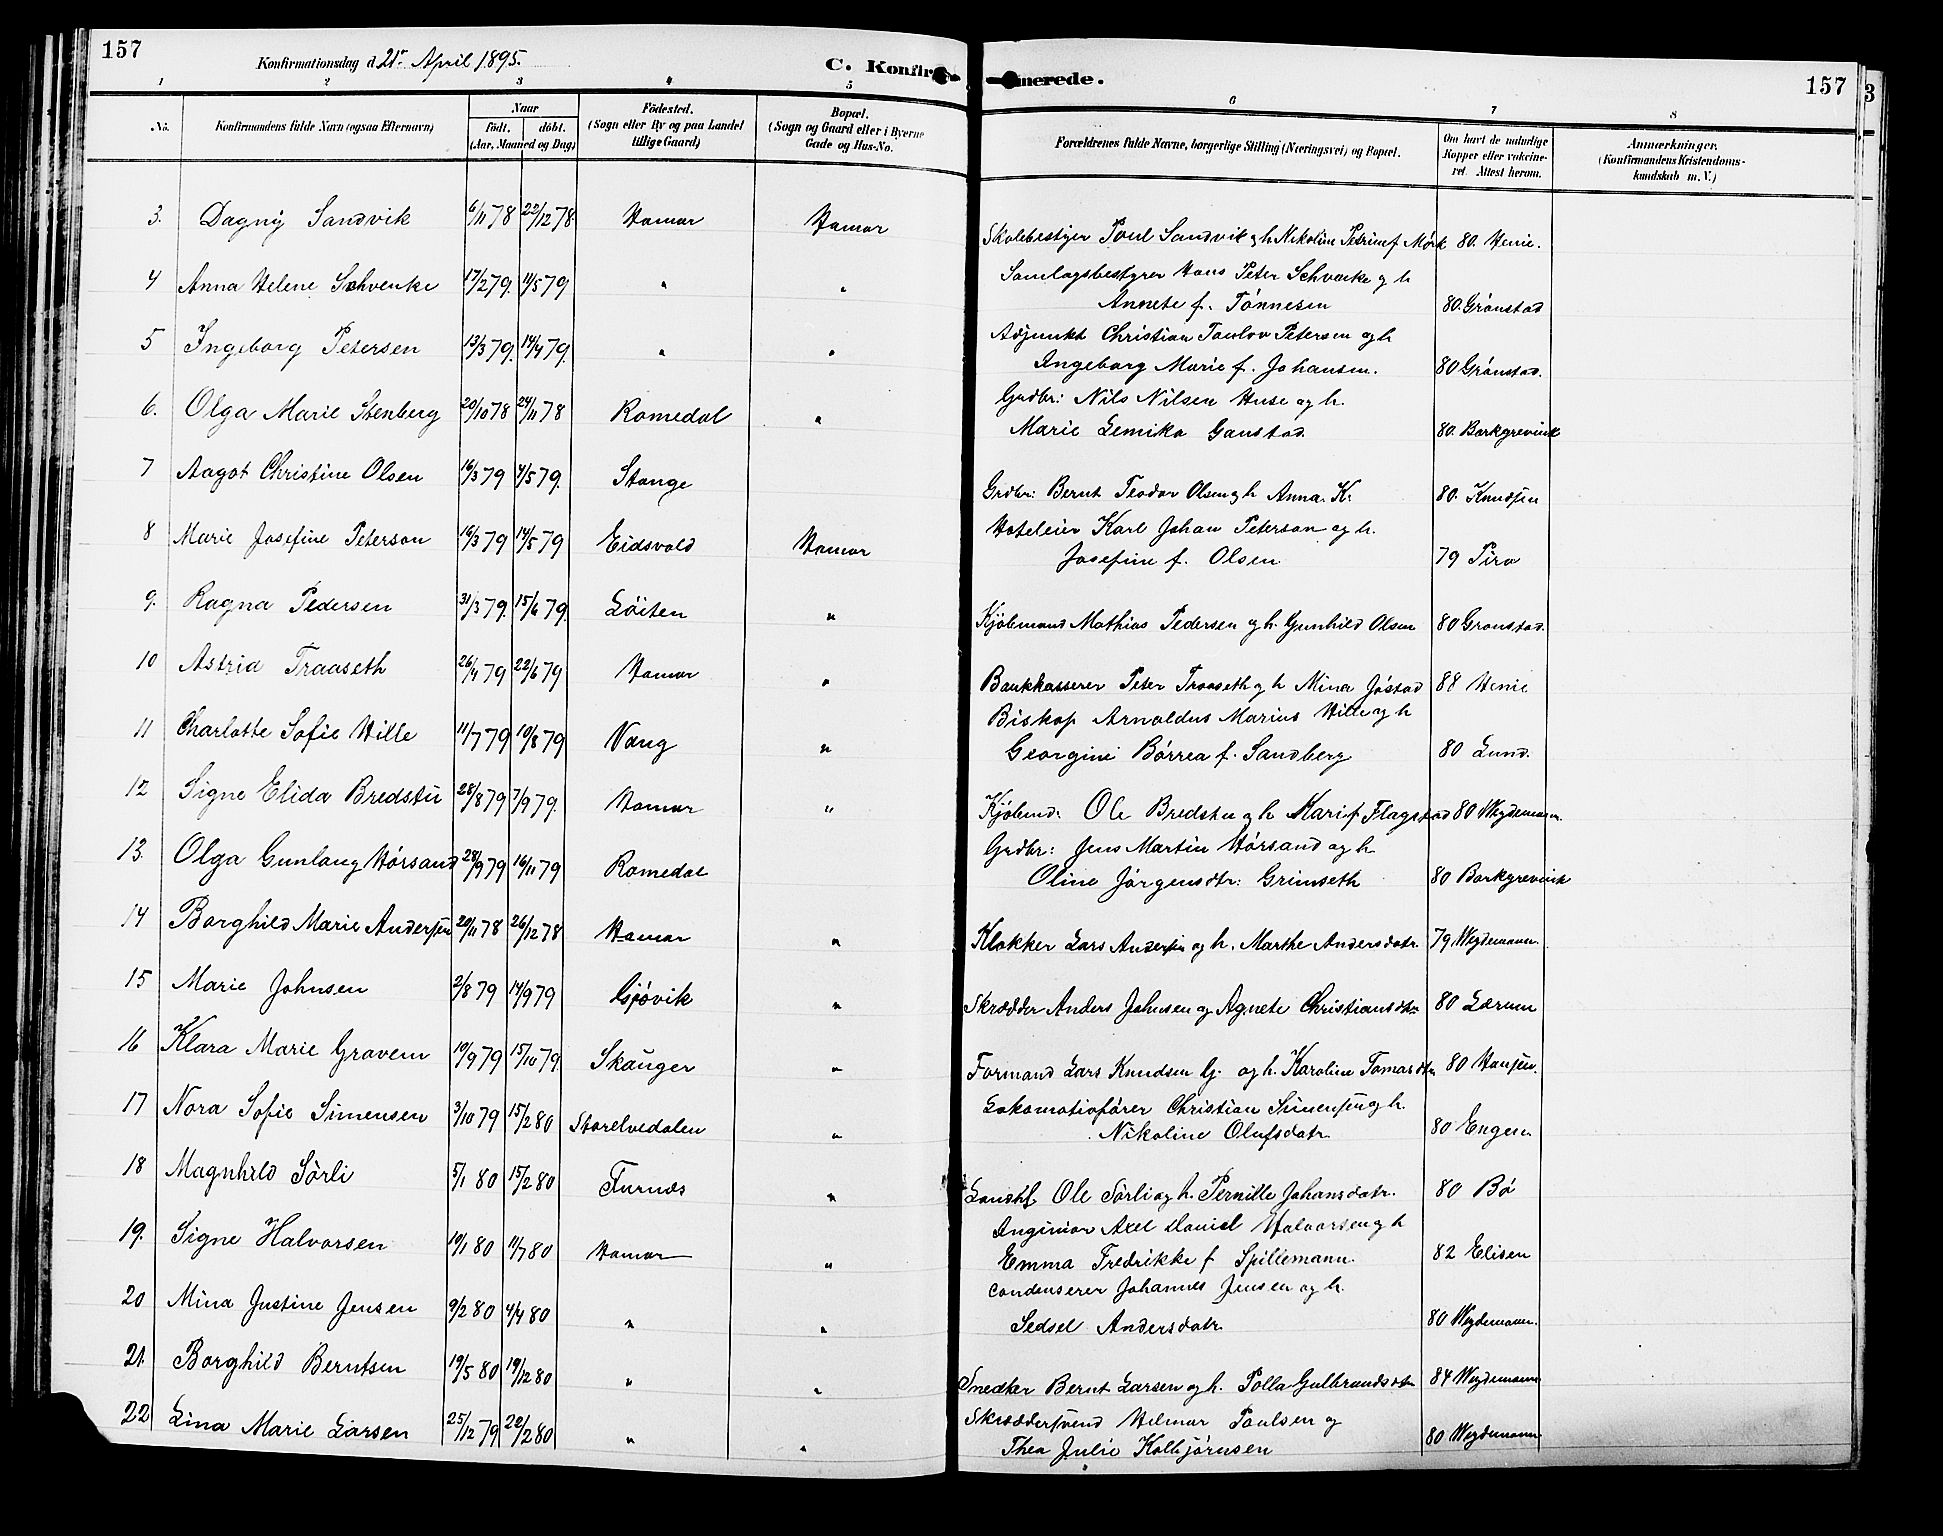 157
Konfirmationsdag d. 21de April 1895.
C. Konfirmerede.
157
3
1 2 3 4 5 6 7 8
No. Konfirmandens fulde Navn (ogsaa Efternavn) Naar født. døbt. (Aar, Maaned og Dag) Fødested. (Sogn eller By og paa Landet tillige Gaard) Bopæl. (Sogn og Gaard eller i Byerne Gade og Hus-No. Forældrenes fulde Navne, borgerlige Stilling (Næringsvei) og Bopæl. Om havt de naturlige Kopper eller vakcineret. Attest herom. Anmærkninger. (Konfirmandens Kristendomskundskab m. V.)
3. Dagny Sandvik 6/11 78 22/12 78 Hamar Hamar Skolebestyer Poul Sandvik og h. Nikoline Petrine f. Mørk 80. Henie.
4 Anna Helene Schvenke 17/2 79. 11/5 79 " " Samlagsbestyrer Hans Peter Schvenke og h
Annete f. Tønnesen 80. Grønstad
5 Ingeborg Petersen 13/3 79. 14/4 79. " " Adjunkt Christian Paulov Petersen og h
Ingeborg Marie f. Johansen. 80 Grønstad.
6. Olga Marie Stenberg 20/10 78 24/11 78 Romedal " Grdbr: Nils Nilsen Huse og h.
Marie Lemika Ganstad. 80. Barkgrevink
7 Aagot Christine Olsen 16/3 79 4/5 79. Stange Grdbr: Bernt Teodor Olsen og h Anna. K. 80. Knudsen
8 Marie Josefine Peterson 16/3 79 14/5 79 Eidsvold Hamar Hoteleier Karl Johan Peterson og h.
Josefine f. Olsen 79 Piro
9. Ragna Pedersen 31/3 79. 15/6 79. Løiten " Kjøbmand Mathias Pedersen og h. Gunhild Olsen 80 Grønstad.
10 Astrid Traaseth 26/4 79 22/6 79 Hamar " Bankkasserer Peter Traaseth og h Mina Jøstad 88 Henie
11 Charlotte Sofie Hille 11/7 79 10/8 79 Vang " Biskop Arnoldus Marius Hille og h
Georgine Børrea f. Sandberg 80 Lund.
12 Signe Elida Bredstu 28/8 79 7/9 79. Hamar " Kjøbmd: Ole Bredstu og h Mari f Flagstad 80 Weydemann.
13. Olga Gunlaug Hørsand 28/9 79 16/11 79 Romedal Grdbr: Jens Martin Hørsand og h
Oline Jørgensdtr: Grimseth 80 Barkgrevink
14 Borghild Marie Andersen 20/11 78 26/12 78 Hamar " Klokker Lars Andersen og h. Marthe Andersdatr. 79 Weydemann.
15 Marie Johnsen 2/8 79 14/9 79 Gjøvik " Skrædder Anders Johnsen og Agnete Christiansdtr 80 Lærum
16 Klara Marie Gravem 10/9 79 15/10 79. Skauger " Formand Lars Knudsen G. og h. Karoline Tomasdtr 80 Hansen.
17 Nora Sofie Simensen 3/10 79 15/2 80 Storelvedalen " Lokomotivfører Christian Simensen og h.
Nikoline Olufsdatr. 80 Engen
18 Magnhild Sørli 5/1 80 15/2 80 Furnes " Ole Sørli og h. Pernille Johansdatr. 80 Bø
19. Signe Halvorsen 19/1 80 11/7 80 Hamar " Inginiør Axel Daniel Halvorsen og h
Emma Fredrikke f Spillemann. 82 Elisen
20 Mina Justine Jensen 9/2 80 4/4 80 " " Condenserer Johannes Jensen og h.
Sedsel Andersdatr. 80 Weydemann.
21. Borghild Berntsen 19/5 80 19/12 80 " " Snedker Bernt Larsen og h. Polla Gulbrandsdtr 84 Weydemann
22 Lina Marie Larsen 25/12 79 22/2 80 " " Skræddersvend Hilmar Paulsen og
Thea Julie Kolbjørnsen 80 Weydemann